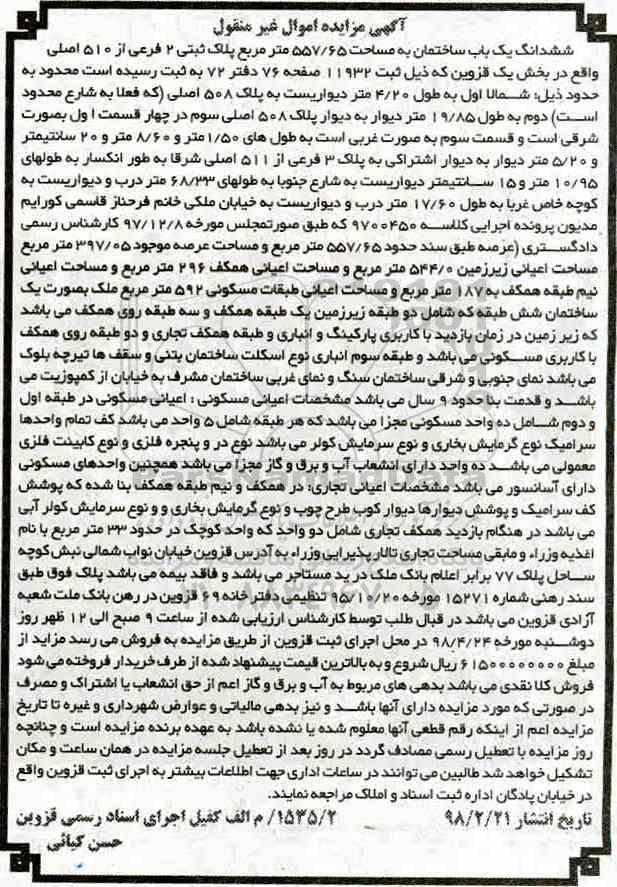 آگهی مزایده اموال غیر منقول
ششدانگ یک باب ساختمان به مساحت ۵۵۷/۶۵ متر مربع پلاک ثبتی ۲ فرعی از ۵۱۰ اصلی
واقع در بخش یک قزوین که ذیل ثبت ۱۱۹۳۲ صفحه ۷۶ دفتر ۷۲ به ثبت رسیده است محدود به
حدود ذیل: شمالا اول به طول ۴/۲۰ متر دیواریست به پلاک ۵۰۸ اصلی (که فعلا به شارع محدود
است) دوم به طول ۱۹/۸۵ متر دیوار به دیوار پلاک ۵۰۸ اصلی سوم در چهار قسمت اول بصورت
شرقی است و قسمت سوم به صورت غربی است به طول های ۱/۵۰متر و ۸/۶۰ متر و ۲۰ سانتیمتر
و ۵/۲۰ متر دیوار به دیوار اشتراکی به پلاک ۳ فرعی از ۵۱۱ اصلی شرقا به طور انکسار به طولهای
۱۰/۹۵ متر و ۱۵ سانتیمتر دیواریست به شارع جنوبا به طولهای ۶۸/۳۳ متر درب و دیواریست به
کوچه خاص غربا به طول ۱۷/۶۰ متر درب و دیواریست به خیابان ملکی خانم فرحناز قاسمی کورایم
مدیون پرونده اجرایی کلاسه ۹۷۰۰۴۵۰ که طبق صورتمجلس مورخه ۹۷/۱۲/۸ کارشناس رسمی
دادگستری (عرصه طبق سند حدود ۵۵۷/۶۵ متر مربع و مساحت عرصه موجود ۳۹۷/۰۵ متر مربع
مساحت اعیانی زیرزمین ۵۴۴/۰ متر مربع و مساحت اعیانی همکف ۲۹۶ متر مربع و مساحت اعیانی
نیم طبقه همکف به ۱۸۷ متر مربع و مساحت اعیانی طبقات مسکونی ۵۹۲ متر مربع ملک بصورت یک
ساختمان شش طبقه که شامل دو طبقه زیرزمین یک طبقه همکف و سه طبقه روی همکف می باشد
که زیر زمین در زمان بازدید با کاربری پارکینگ و انباری و طبقه همکف تجاری و دو طبقه روی همکف
با کاربری مسکونی می باشد و طبقه سوم انباری نوع اسکلت ساختمان بتنی و سقف ها تیرچه بلوک
می باشد نمای جنوبی و شرقی ساختمان سنگ و نمای غربی ساختمان مشرف به خیابان از کمپوزیت می
باشد و قدمت بنا حدود ۹ سال می باشد مشخصات اعیانی مسکونی : اعیانی مسکونی در طبقه اول
و دوم شامل ده واحد مسکونی مجزا می باشد که هر طبقه شامل ۵ واحد می باشد کف تمام واحدها
سرامیک نوع گرمایش بخاری و نوع سرمایش کولر می باشد نوع در و پنجره فلزی و نوع کابینت فلزی
معمولی می باشد ده واحد دارای انشعاب آب و برق و گاز مجزا می باشد همچنین واحدهای مسکونی
دارای آسانسور می باشد مشخصات اعیانی تجاری: در همکف و نیم طبقه همکف بنا شده که پوشش
کف سرامیک و پوشش دیوارها دیوار کوب طرح چوب و نوع گرمایش بخاری و و نوع سرمایش کولر آبی
می باشد در هنگام بازدید همکف تجاری شامل دو واحد که واحد کوچک در حدود ۳۳ متر مربع با نام
اغذیه وزراء و مابقی مساحت تجاری تالار پذیرایی وزراء به آدرس قزوین خیابان نواب شمالی نبش کوچه
ساحل پلاک ۷۷ برابر اعلام بانک ملک در ید مستاجر می باشد و فاقد بیمه می باشد پلاک فوق طبق
سند رهنی شماره ۱۵۲۷۱ مورخه ۹۵/۱۰/۲۰ تنظیمی دفترخانه ۶۹ قزوین در رهن بانک ملت شعبه
آزادی قزوین می باشد در قبال طلب توسط کارشناس ارزیابی شده از ساعت ۹ صبح الی ۱۲ ظهر روز
دوشنبه مورخه ۹۸/۴/۲۴ در محل اجرای ثبت قزوین از طریق مزایده به فروش می رسد مزاید از
مبلغ ۶۱۵۰۰۰۰۰۰۰۰ ریال شروع و به بالاترین قیمت پیشنهاد شده از طرف خریدار فروخته می شود
فروش کلا نقدی می باشد بدهی های مربوط به آب و برق و گاز اعم از حق انشعاب یا اشتراک و مصرف
در صورتی که مورد مزایده دارای آنها باشد و نیز بدهی مالیاتی و عوارض شهرداری و غیره تا تاریخ
مزایده اعم از اینکه رقم قطعی آنها معلوم شده یا نشده باشد به عهده برنده مزایده است و چنانچه
روز مزایده با تعطیل رسمی مصادف گردد در روز بعد از تعطیل جلسه مزایده در همان ساعت و مکان
تشکیل خواهد شد طالبین می توانند در ساعات اداری جهت اطلاعات بیشتر به اجرای ثبت قزوین واقع
در خیابان پادگان اداره ثبت اسناد و املاک مراجعه نمایند.
تاریخ انتشار ۹۸/۲/۲۱ ۱۵۳۵/۲/ م الف کفیل اجرای اسناد رسمی قزوین
حسن کیائی